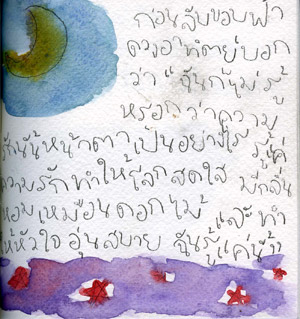 ก่อนลับขอบฟ้า
ดวงอาทิตย์บอก
ว่า "ฉันก็ไม่รู้
หรอกว่าความ
รักนั้นหน้าตาเป็นอย่างไร รู้แค่
ความรักทำให้โลกสดใส มีกลิ่น
หอมเหมือนดอกไม้ และทำ
ให้หัวใจอุ่นสบาย ฉันรู้แค่นี้"